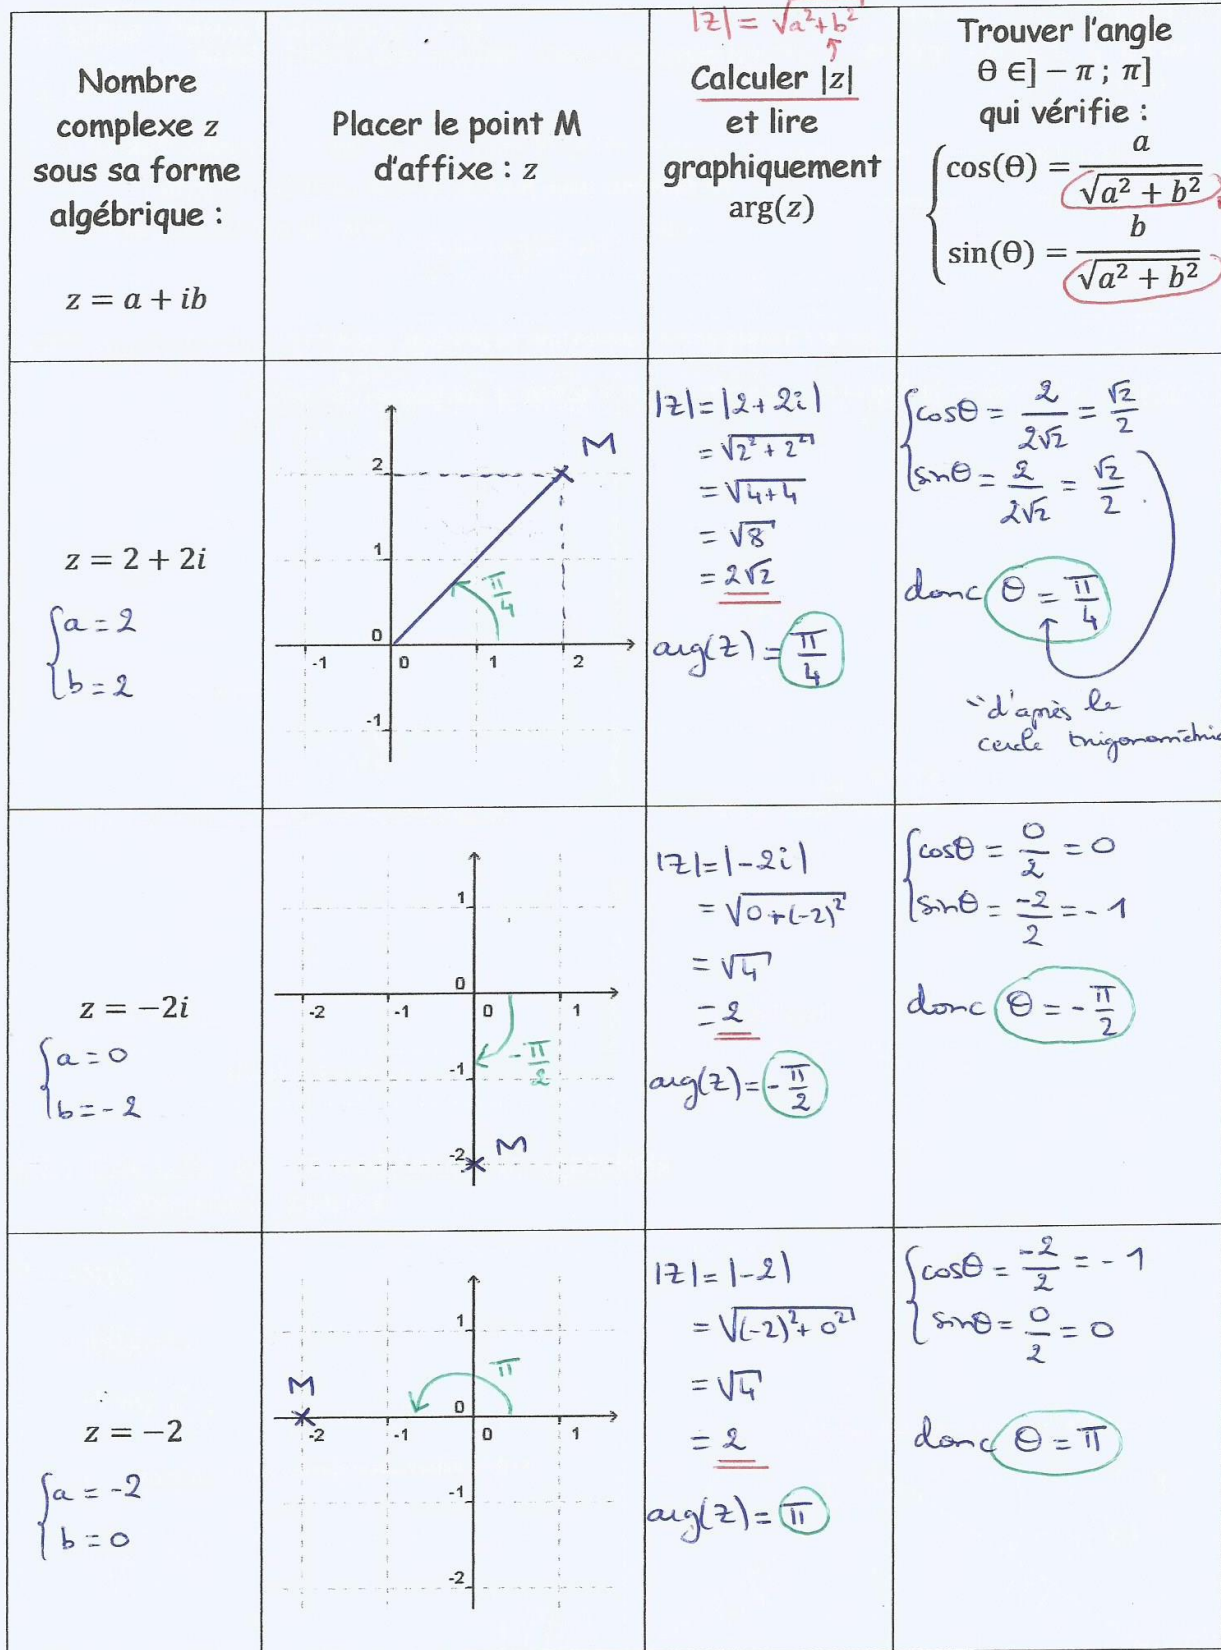 Nombre
complexe z
sous sa forme
algébrique :
z = a + ib
Placer le point M
d'affixe : z
|z| = √a²+b²
Calculer |z|
et lire
graphiquement
arg(z)
Trouver l'angle
θ ∈] − π ; π]
qui vérifie :
cos(θ) = a / √a² + b²
sin(θ) = b / √a² + b²
z = 2 + 2i
{a = 2
b = 2
M
2
1
π/4
0
-1 0 1 2
-1
|z| = |2 + 2i|
= √2² + 2²
= √4+4
= √8
= 2√2
arg(z) = π/4
{cosθ = 2/2√2 = √2/2
sinθ = 2/2√2 = √2/2
donc θ = π/4
"d'après le
cercle
z = −2i
{a = 0
b = - 2
1
0
-2 -1 0 1
-π/2
-1
-2 M
|z| = |-2i|
= √0+(-2)²
= √4
= 2
arg(z) = -π/2
{cosθ = 0/2 = 0
sinθ = -2/2 = - 1
donc θ = -π/2
z = −2
{a = -2
b = 0
1
π
M
0
-2 -1 0 1
-1
-2
|z| = |-2|
= √(-2)²+ 0²
= √4
= 2
arg(z) = π
{cosθ = -2/2 = - 1
sinθ = 0/2 = 0
donc θ = π